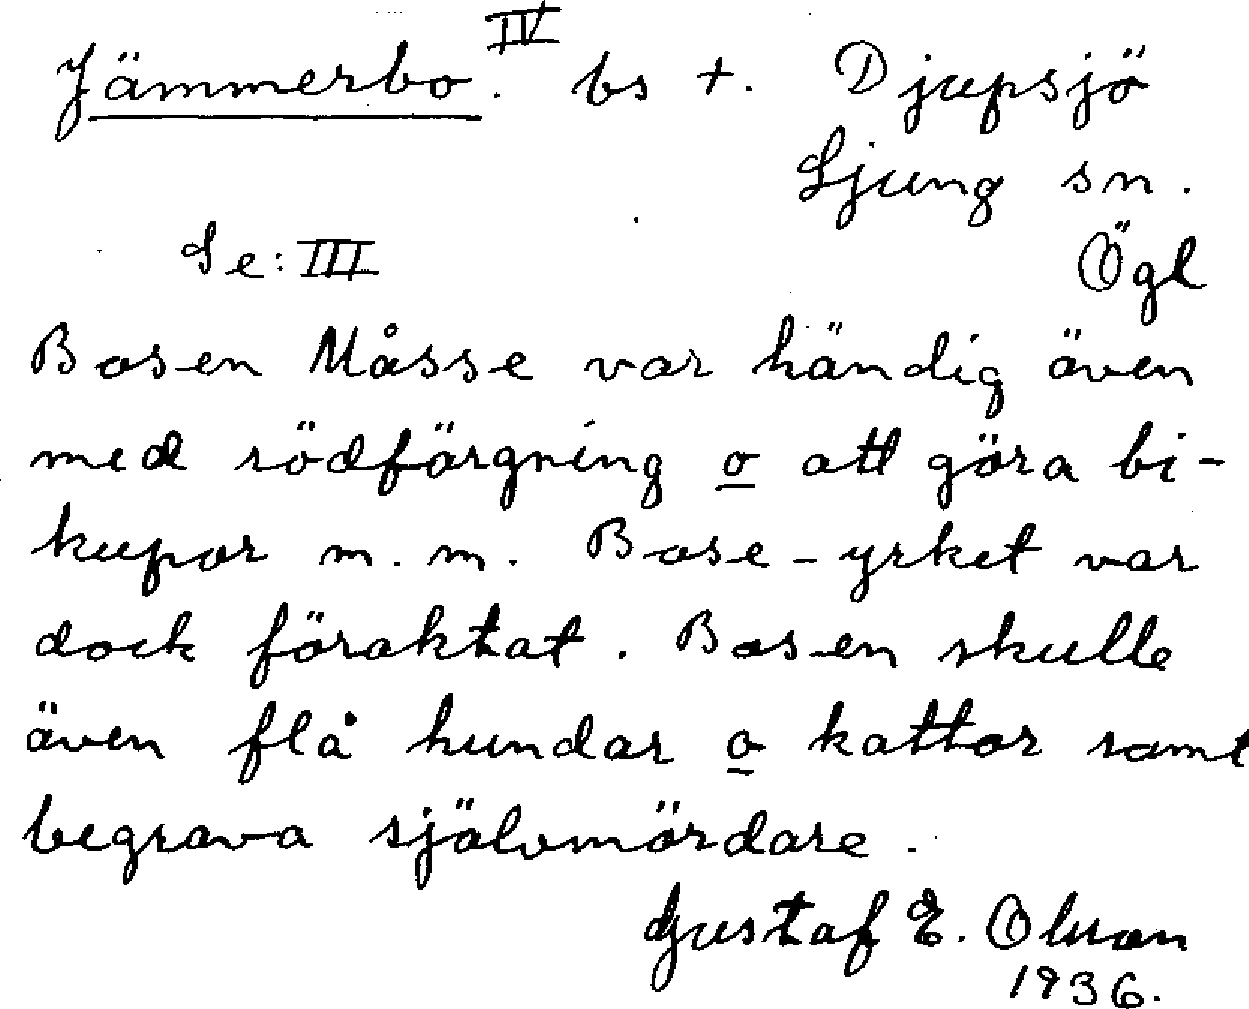 Jämmerbo. IV bs +. Djupsjö
Ljung sn.
Se: III Ögl
Bosen Måsse var händig även
med rödfärgning o att göra bi-
kupor m.m. Bose-yrket var
dock föraktat. Bosen skulle
även flå hundar o kattor samt
begrava självmördare.
Gustaf E. Olsson
1936.